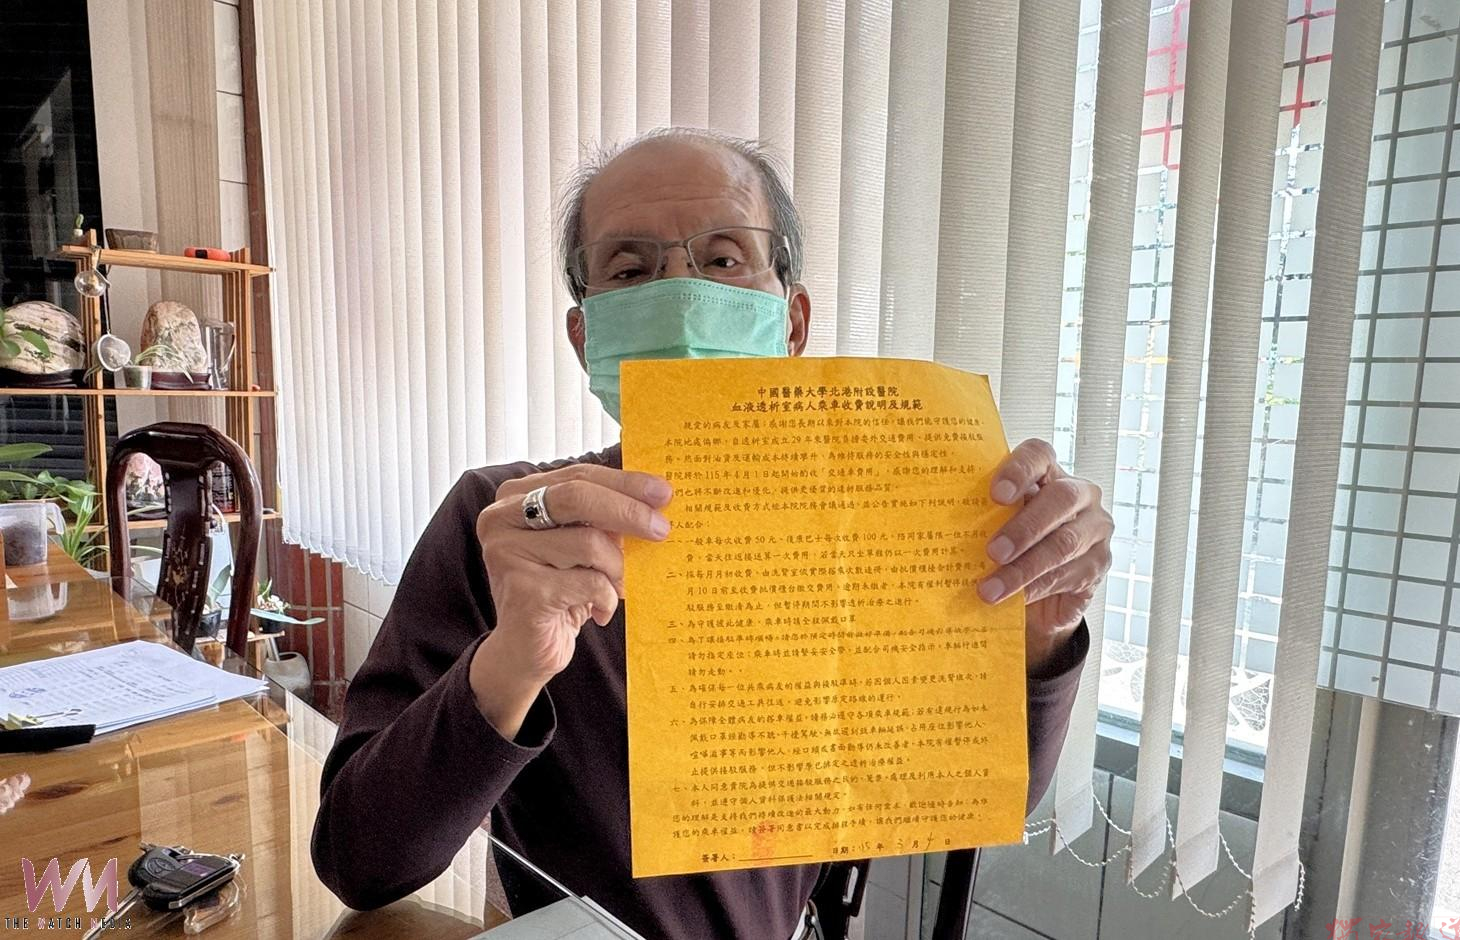 中國醫藥大學北港附設醫院
血液透析室病人乘車收費說明及規範
親愛的病友及家屬：感謝您長期以來對本院的信任，讓我們能守護您的健康。
本院地處偏鄉，自透析室成立29年來醫院負擔委外交通費用、提供免費接駁服
務。然面對油資及運輸成本持續攀升，為維持服務的安全性與穩定性，
醫院將於115年4月1日起開始酌收「交通車費用」，感謝您的理解和支持，
我們也將不斷改進和優化，提供更優質的透析服務品質。
相關規範及收費方式經本院院務會議通過，並公告實施如下列說明，敬請
人配合：
一、一般車每次收費50元、復康巴士每次收費100元，陪同家屬限一位不另收
費，當天往返接送算一次費用，若當天只坐單程仍以一次費用計算。
二、採每月月初收費，由洗腎室依實際搭乘次數造冊，由批價櫃檯合計費用，每
月10日前至收費批價櫃台繳交費用。逾期未繳者，本院有權利暫停提供接
駁服務至繳清為止，但暫停期間不影響透析治療之進行。
三、為守護彼此健康，乘車時請全程佩戴口罩
四、為了讓接駁準時順暢，請您於預定時間前做好準備，配合司機
請勿指定座位；乘車時並請繫妥安全帶，並配合司機安全指示，車輛行進間
請勿走動。
五、為確保每一位共乘病友的權益與接駁準時，若因個人因素變更洗腎班次，請
自行安排交通工具往返，避免影響原定路線的運行。
六、為保障全體病友的搭車權益，請務必遵守各項乘車規範；若有違規行為如未
佩戴口罩經勸導不聽、干擾駕駛、無故遲到致車輛延誤、占用座位影響他人、
喧嘩滋事等而影響他人，經口頭或書面勸導仍未改善者，本院有權暫停或終
止提供接駁服務，但不影響原已排定之透析治療權益。
七、本人同意貴院為提供交通接駁服務之目的，蒐集、處理及利用本人之個人資
料，並遵守個人資料保護法相關規定。
您的理解是支持我們持續改進的最大動力，如有任何需求，歡迎隨時告知；為維
護您的乘車權益，請簽署同意書以完成辦理手續，讓我們繼續守護您的健康。
簽署人： 日期：115年3月4日
WM
THE WATCH MEDIA